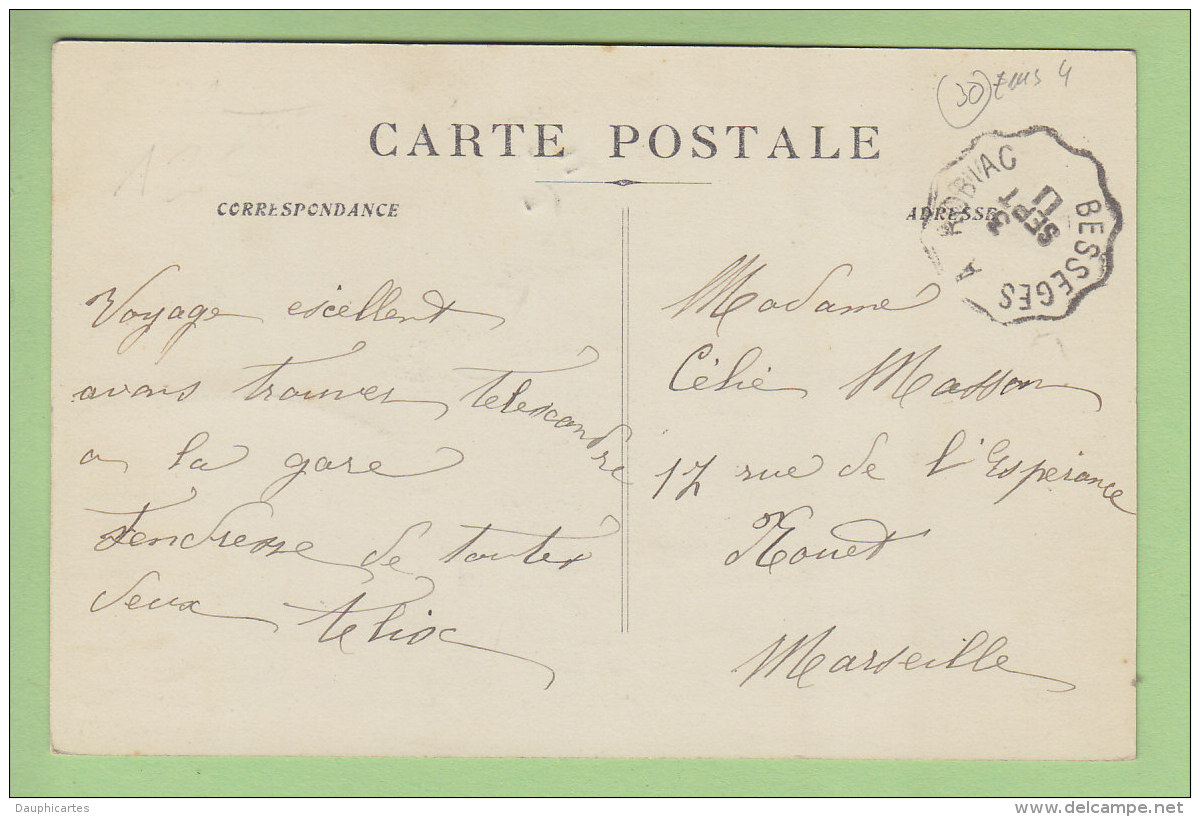 (30)
CARTE POSTALE
CORRESPONDANCE
ADRESSE
BESSEGES A ROBIAC
3
SEPT
11
Voyage exellent
avons trouver
a la gare
Tendresse de toutes
deux Felix
Madame
Célie Masson
17 rue de l'Espérance
Rouet
Marseille
Dauphicartes
delcampe.net